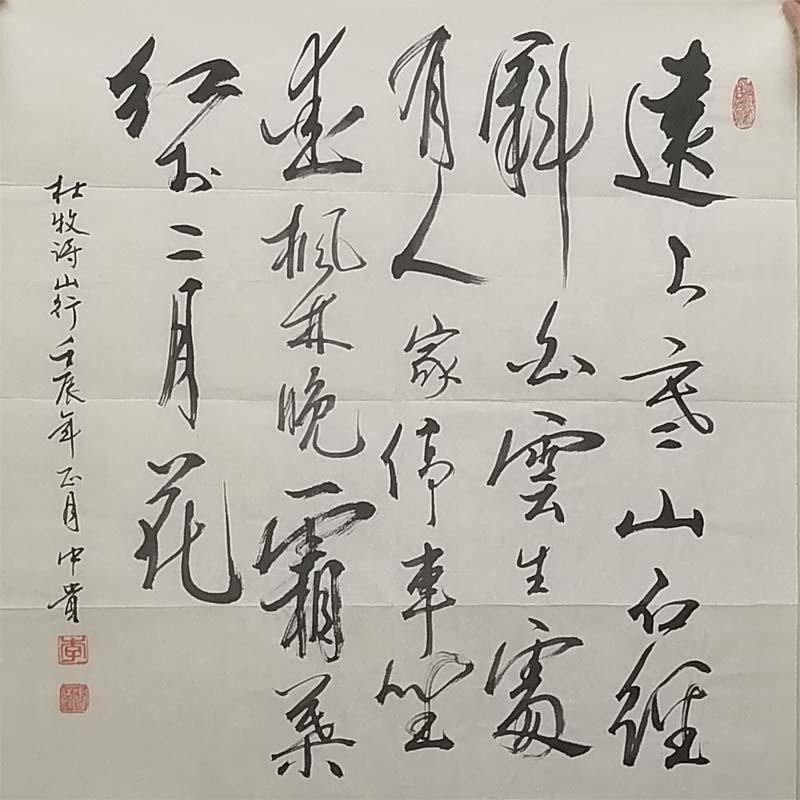 遠上寒山石徑
斜白雲生處
有人家停車坐
愛楓林晚霜葉
紅於二月花
杜牧詩山行壬辰年正月中貴
李